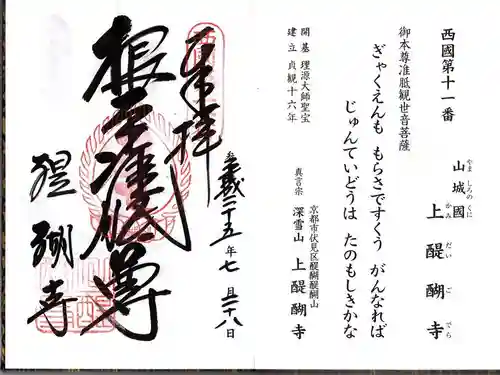 西國第十一番
山城國 上醍醐寺
やま しろの くに かみ だい ご でら
御本尊准胝観世音菩薩
ぎゃくえんも もらさですくう がんなれば
じゅんていどうは たのもしきかな
開基 理源大師聖宝
建立 貞観十六年
京都市伏見区醍醐醍醐山
真言宗 深雪山 上醍醐寺
奉拝
平成二十五年七月二十八日
根本准胝尊
醍醐寺